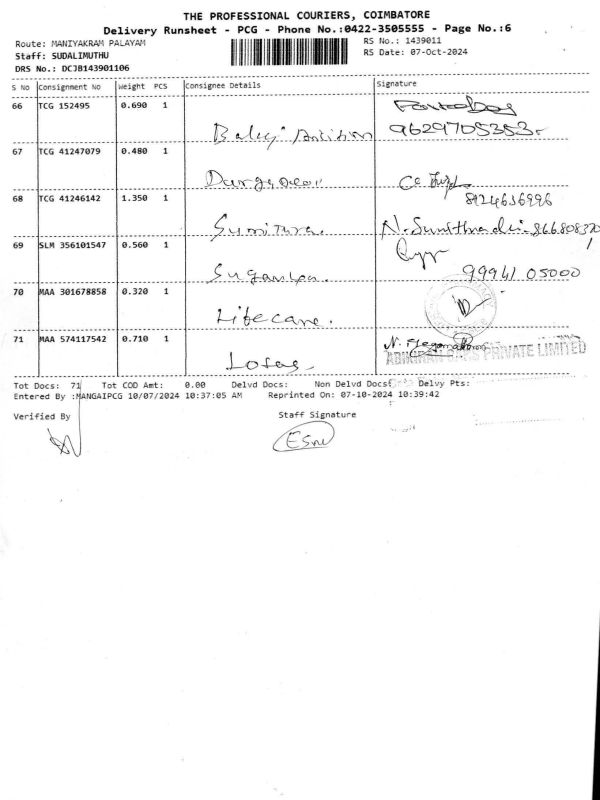 THE PROFESSIONAL COURIERS, COIMBATORE
Delivery Runsheet - PCG - Phone No.:0422-3505555 - Page No.:6
Route: MANIYAKRAM PALAYAM
RS No.: 1439011
Staff: SUDALIMUTHU
RS Date: 07-Oct-2024
DRS No.: DCJB143901106
S No Consignment No Weight PCS Consignee Details Signature
66 TCG 152495 0.690 1
9629705353
67 TCG 41247079 0.480 1
68 TCG 41246142 1.350 1
8124636996
69 SLM 356101547 0.560 1
99941 05000
70 MAA 301678858 0.320 1
Lifecare.
71 MAA 574117542 0.710 1
PRIVATE LIMITED
Lotas
Tot Docs: 71 Tot COD Amt: 0.00 Delvd Docs: Non Delvd Docs: Delvy Pts:
Entered By :MANGAIPCG 10/07/2024 10:37:05 AM Reprinted On: 07-10-2024 10:39:42
Verified By Staff Signature